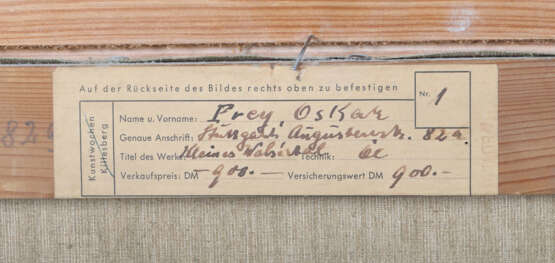 Auf der Rückseite des Bildes rechts oben zu befestigen
Nr. 1
Kunstwochen
Killesberg
Name u. Vorname: Frey, Oskar
Genaue Anschrift: Stuttgart, Augustenstr. 82a
Titel des Werkes: Kleines Walsertal Technik: Öl
Verkaufspreis: DM 900.— Versicherungswert DM 900.—